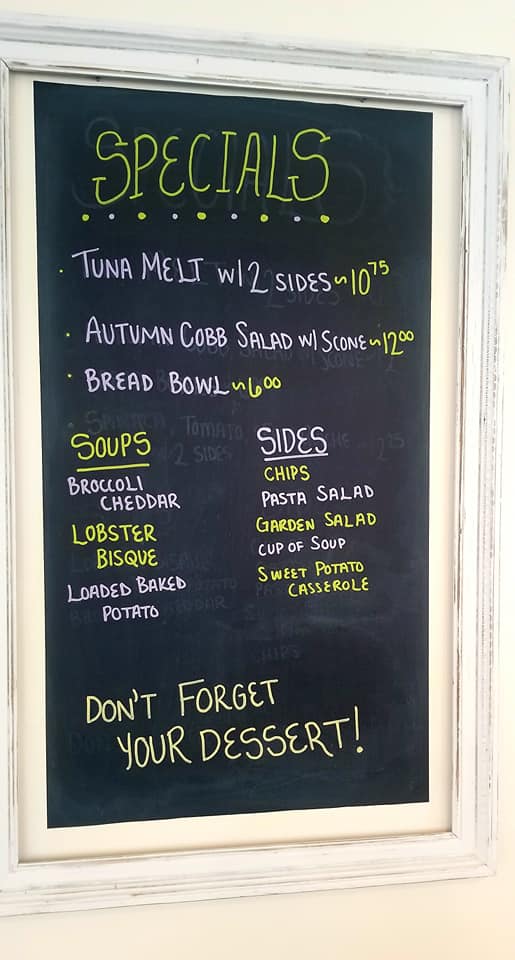 SPECIALS
· TUNA MELT W/ 2 SIDES ~ 10 75
· AUTUMN COBB SALAD W/ SCONE ~ 12 00
· BREAD BOWL ~ 6 00
SOUPS
BROCCOLI
CHEDDAR
LOBSTER
BISQUE
LOADED BAKED
POTATO
SIDES
CHIPS
PASTA SALAD
GARDEN SALAD
CUP OF SOUP
SWEET POTATO
CASSEROLE
DON'T FORGET
YOUR DESSERT!